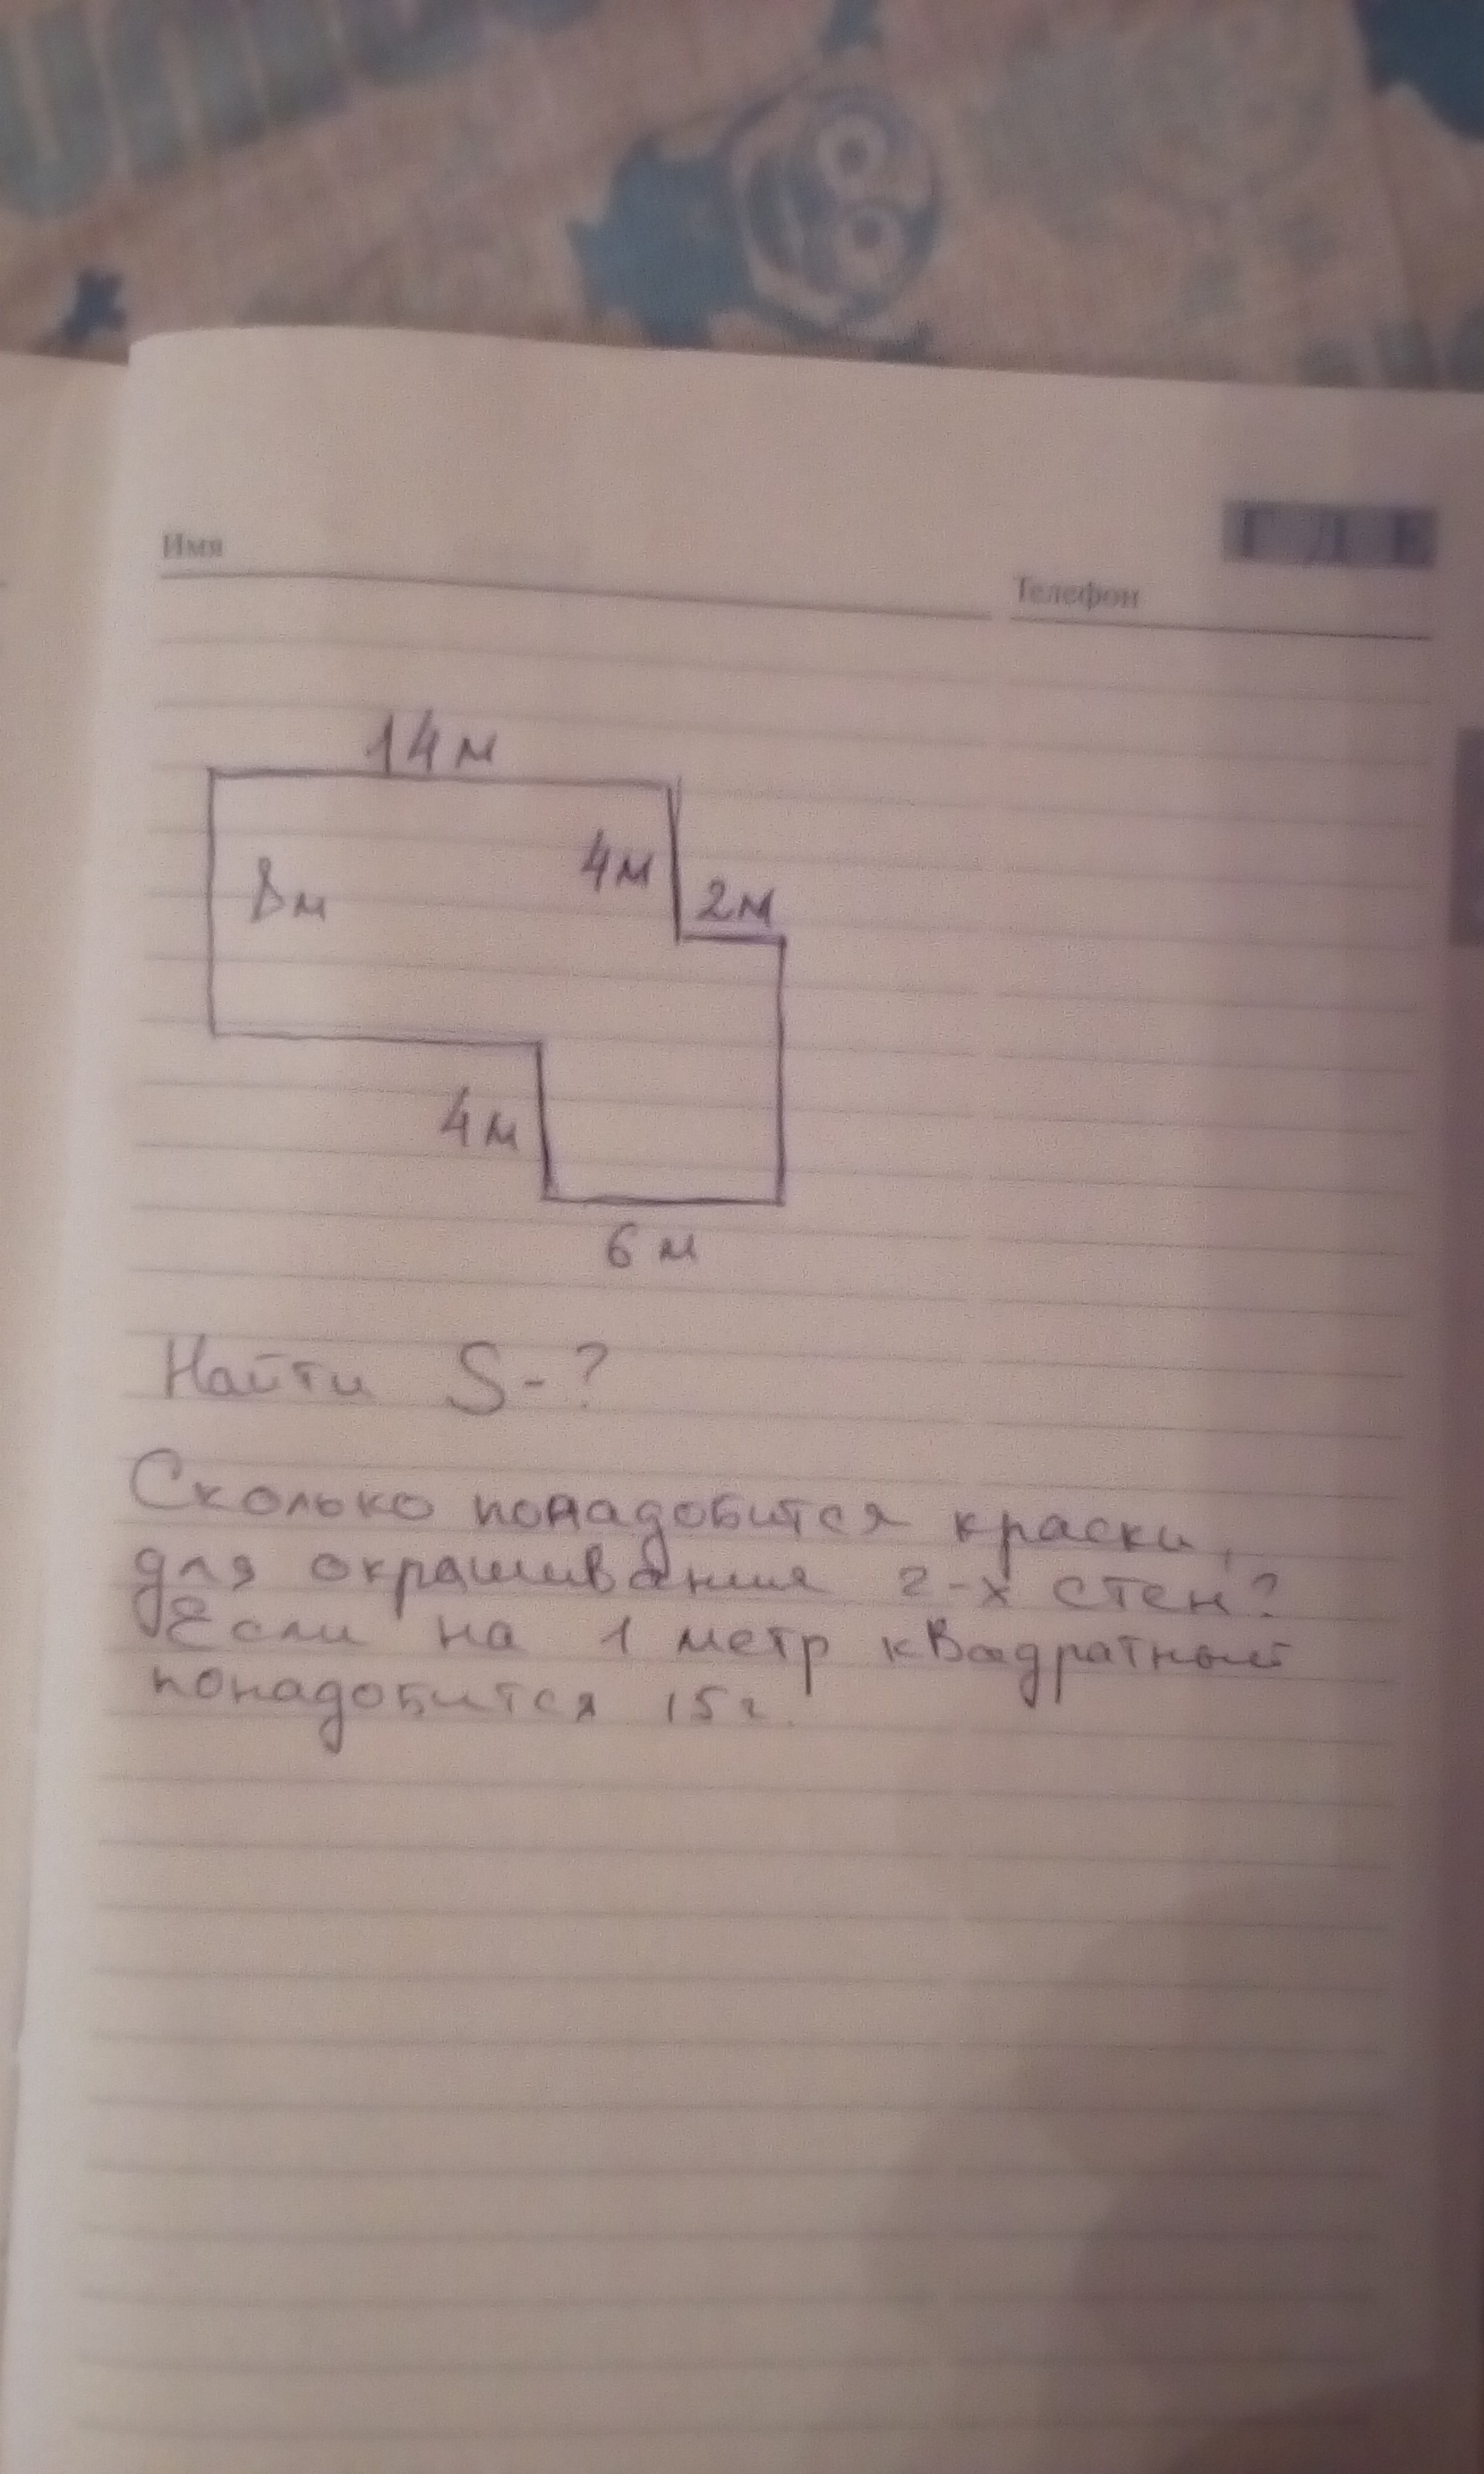 ГДЕ
Имя
Телефон
14 м
8 м
4 м
2 м
4 м
6 м
Найти S-?
Сколько понадобится краски,
для окрашивания 2-х стен?
Если на 1 метр квадратный
понадобится 15 г.